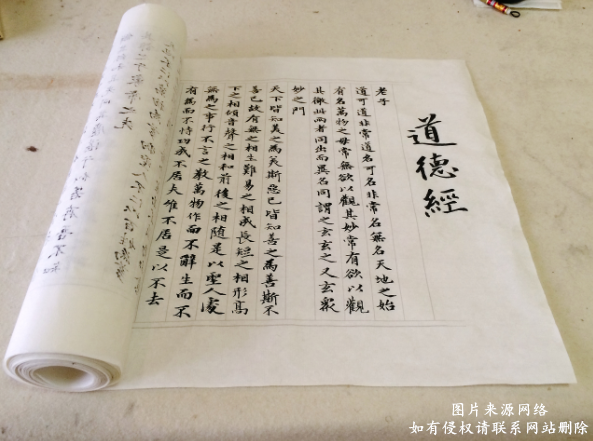 道德經
老子
道可道非常道名可名非常名無名天地之始
有名萬物之母常無欲以觀其妙常有欲以觀
其徼此兩者同出而異名同謂之玄玄之又玄衆
妙之門
天下皆知美之為美斯惡已皆知善之為善斯不
善已故有無之相生難易之相成長短之相形高
下之相傾音聲之相和前後之相隨是以聖人處
無為之事行不言之教萬物作而不辭生而不
有為而不恃功成不居夫唯不居是以不去
图片来源网络
如有侵权请联系网站删除